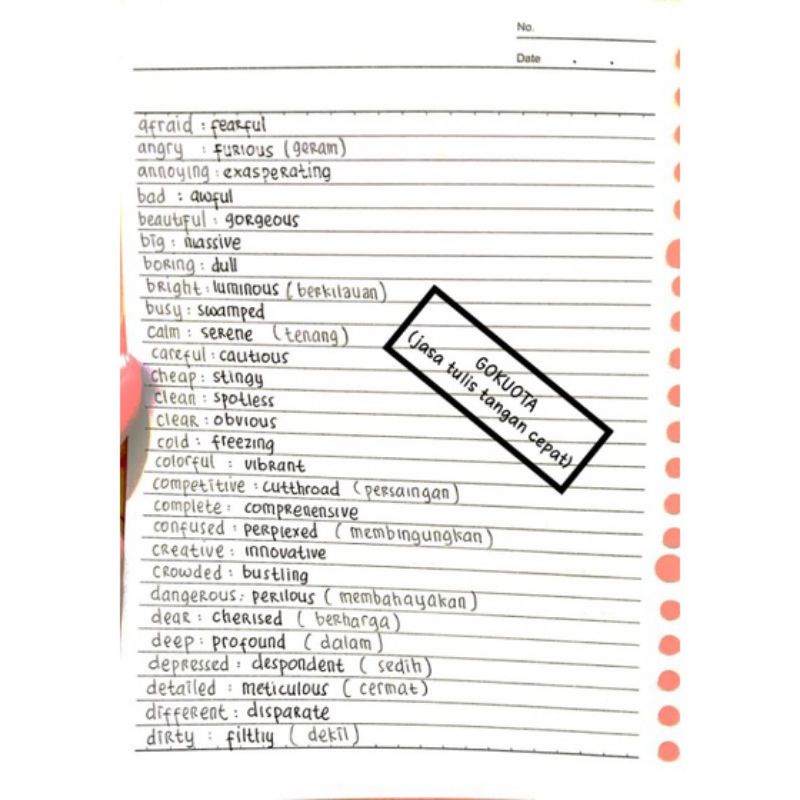 No.
Date . .
afraid : fearful
angry : furious (geram)
annoying : exasperating
bad : awful
beautiful : gorgeous
big : massive
boring : dull
bright : luminous (berkilauan)
busy : swamped
calm : serene (tenang)
careful : cautious
cheap : stingy
clean : spotless
clear : obvious
cold : freezing
colorful : vibrant
competitive : cutthroad (persaingan)
complete : comprehensive
confused : perplexed (membingungkan)
creative : innovative
crowded : bustling
dangerous : perilous (membahayakan)
dear : cherised (berharga)
deep : profound (dalam)
depressed : despondent (sedih)
detailed : meticulous (cermat)
different : disparate
dirty : filthy (dekil)
GOKUOTA
(jasa tulis tangan cepat)